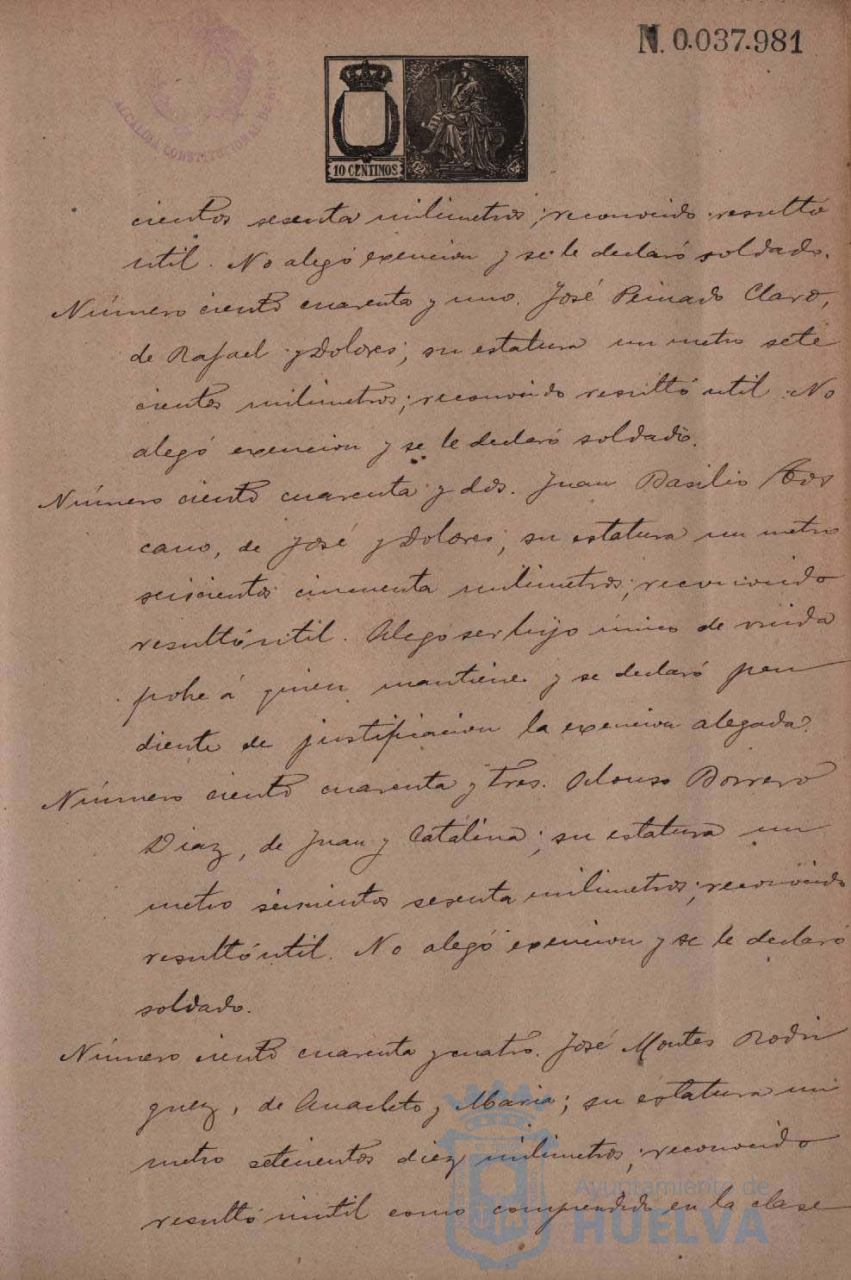 N. 0.037.981
ALCALDIA CONSTITUCIONAL DE
10 CENTIMOS
cientos sesenta milimetros; reconocido resultó
util. No alegó exencion y se le declaró soldado.
Número ciento cuarenta y uno. José Peinado Claro,
de Rafael y Dolores; su estatura un metro sete
cientos milimetros; reconocido resultó util. No
alegó exencion y se le declaró soldado.
Número ciento cuarenta y dos. Juan Basilio Tos
cano, de José y Dolores; su estatura un metro
seiscientos cincuenta milimetros; reconocido
resultó util. Alegó ser hijo único de viuda
pobre á quien mantiene y se declaró pen
diente de justificacion la exencion alegada.
Número ciento cuarenta y tres. Alonso Borrero
Diaz, de Juan y Catalina; su estatura un
metro seiscientos sesenta milimetros; reconocido
resultó util. No alegó exencion y se le declaró
soldado.
Número ciento cuarenta y cuatro. José Montes Rodri
guez, de Anacleto y Maria; su estatura un
metro setecientos diez milimetros; reconocido
resultó inutil como comprendido en la clase
Ayuntamiento de
HUELVA